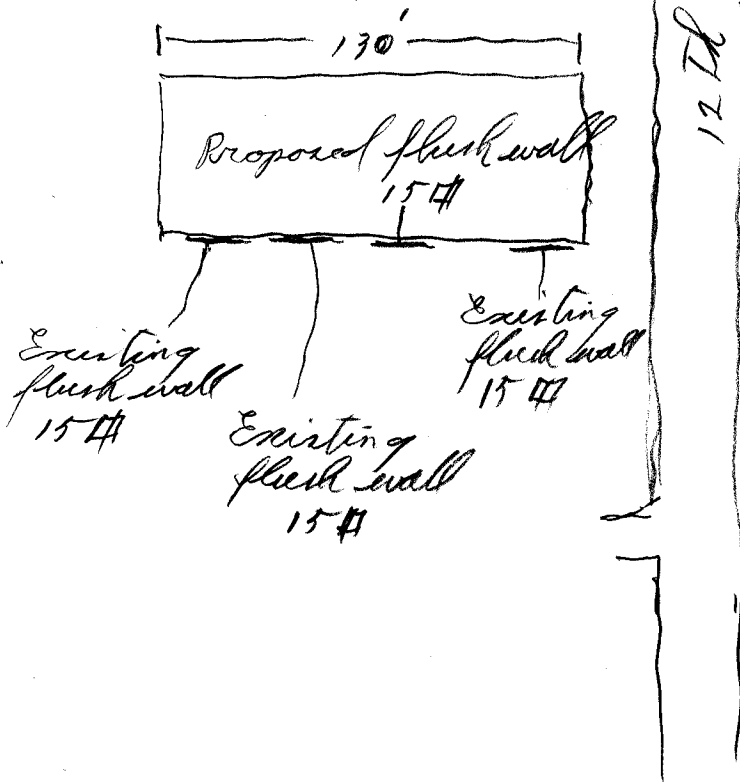 130'
12 Th
Proposed flush wall
15 ⏍
Existing
flush wall
15 ⏍
Existing
flush wall
15 ⏍
Existing
flush wall
15 ⏍